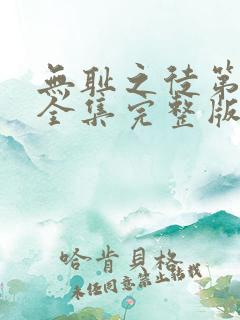 無耻之徒第
全集完整版
哈肯貝格
未经同意禁止转载